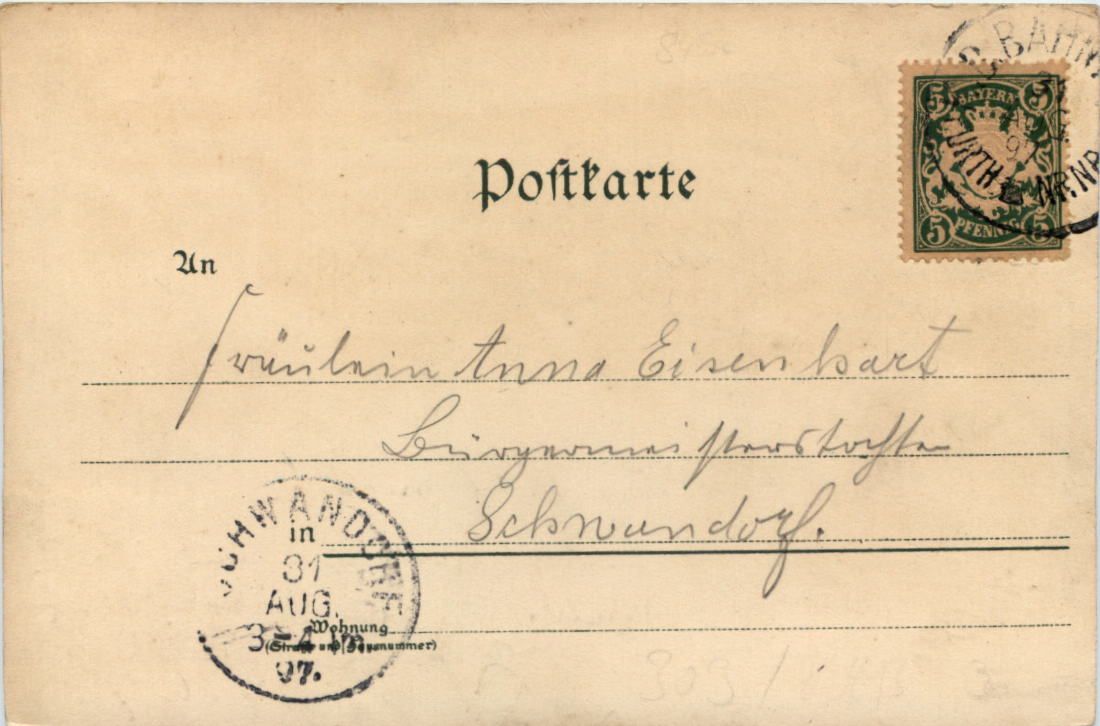 BAHN
31
AUG.
97
FURTH NRNB
5 BAYERN 5
5 PFENNIG 5
Postkarte
An
Fräulein Anna Eisenhart
Bürgermeisterstochter
Schwandorf.
SCHWANDORF
31
AUG.
3-4
97.
in
Wohnung
(Straße und Hausnummer)